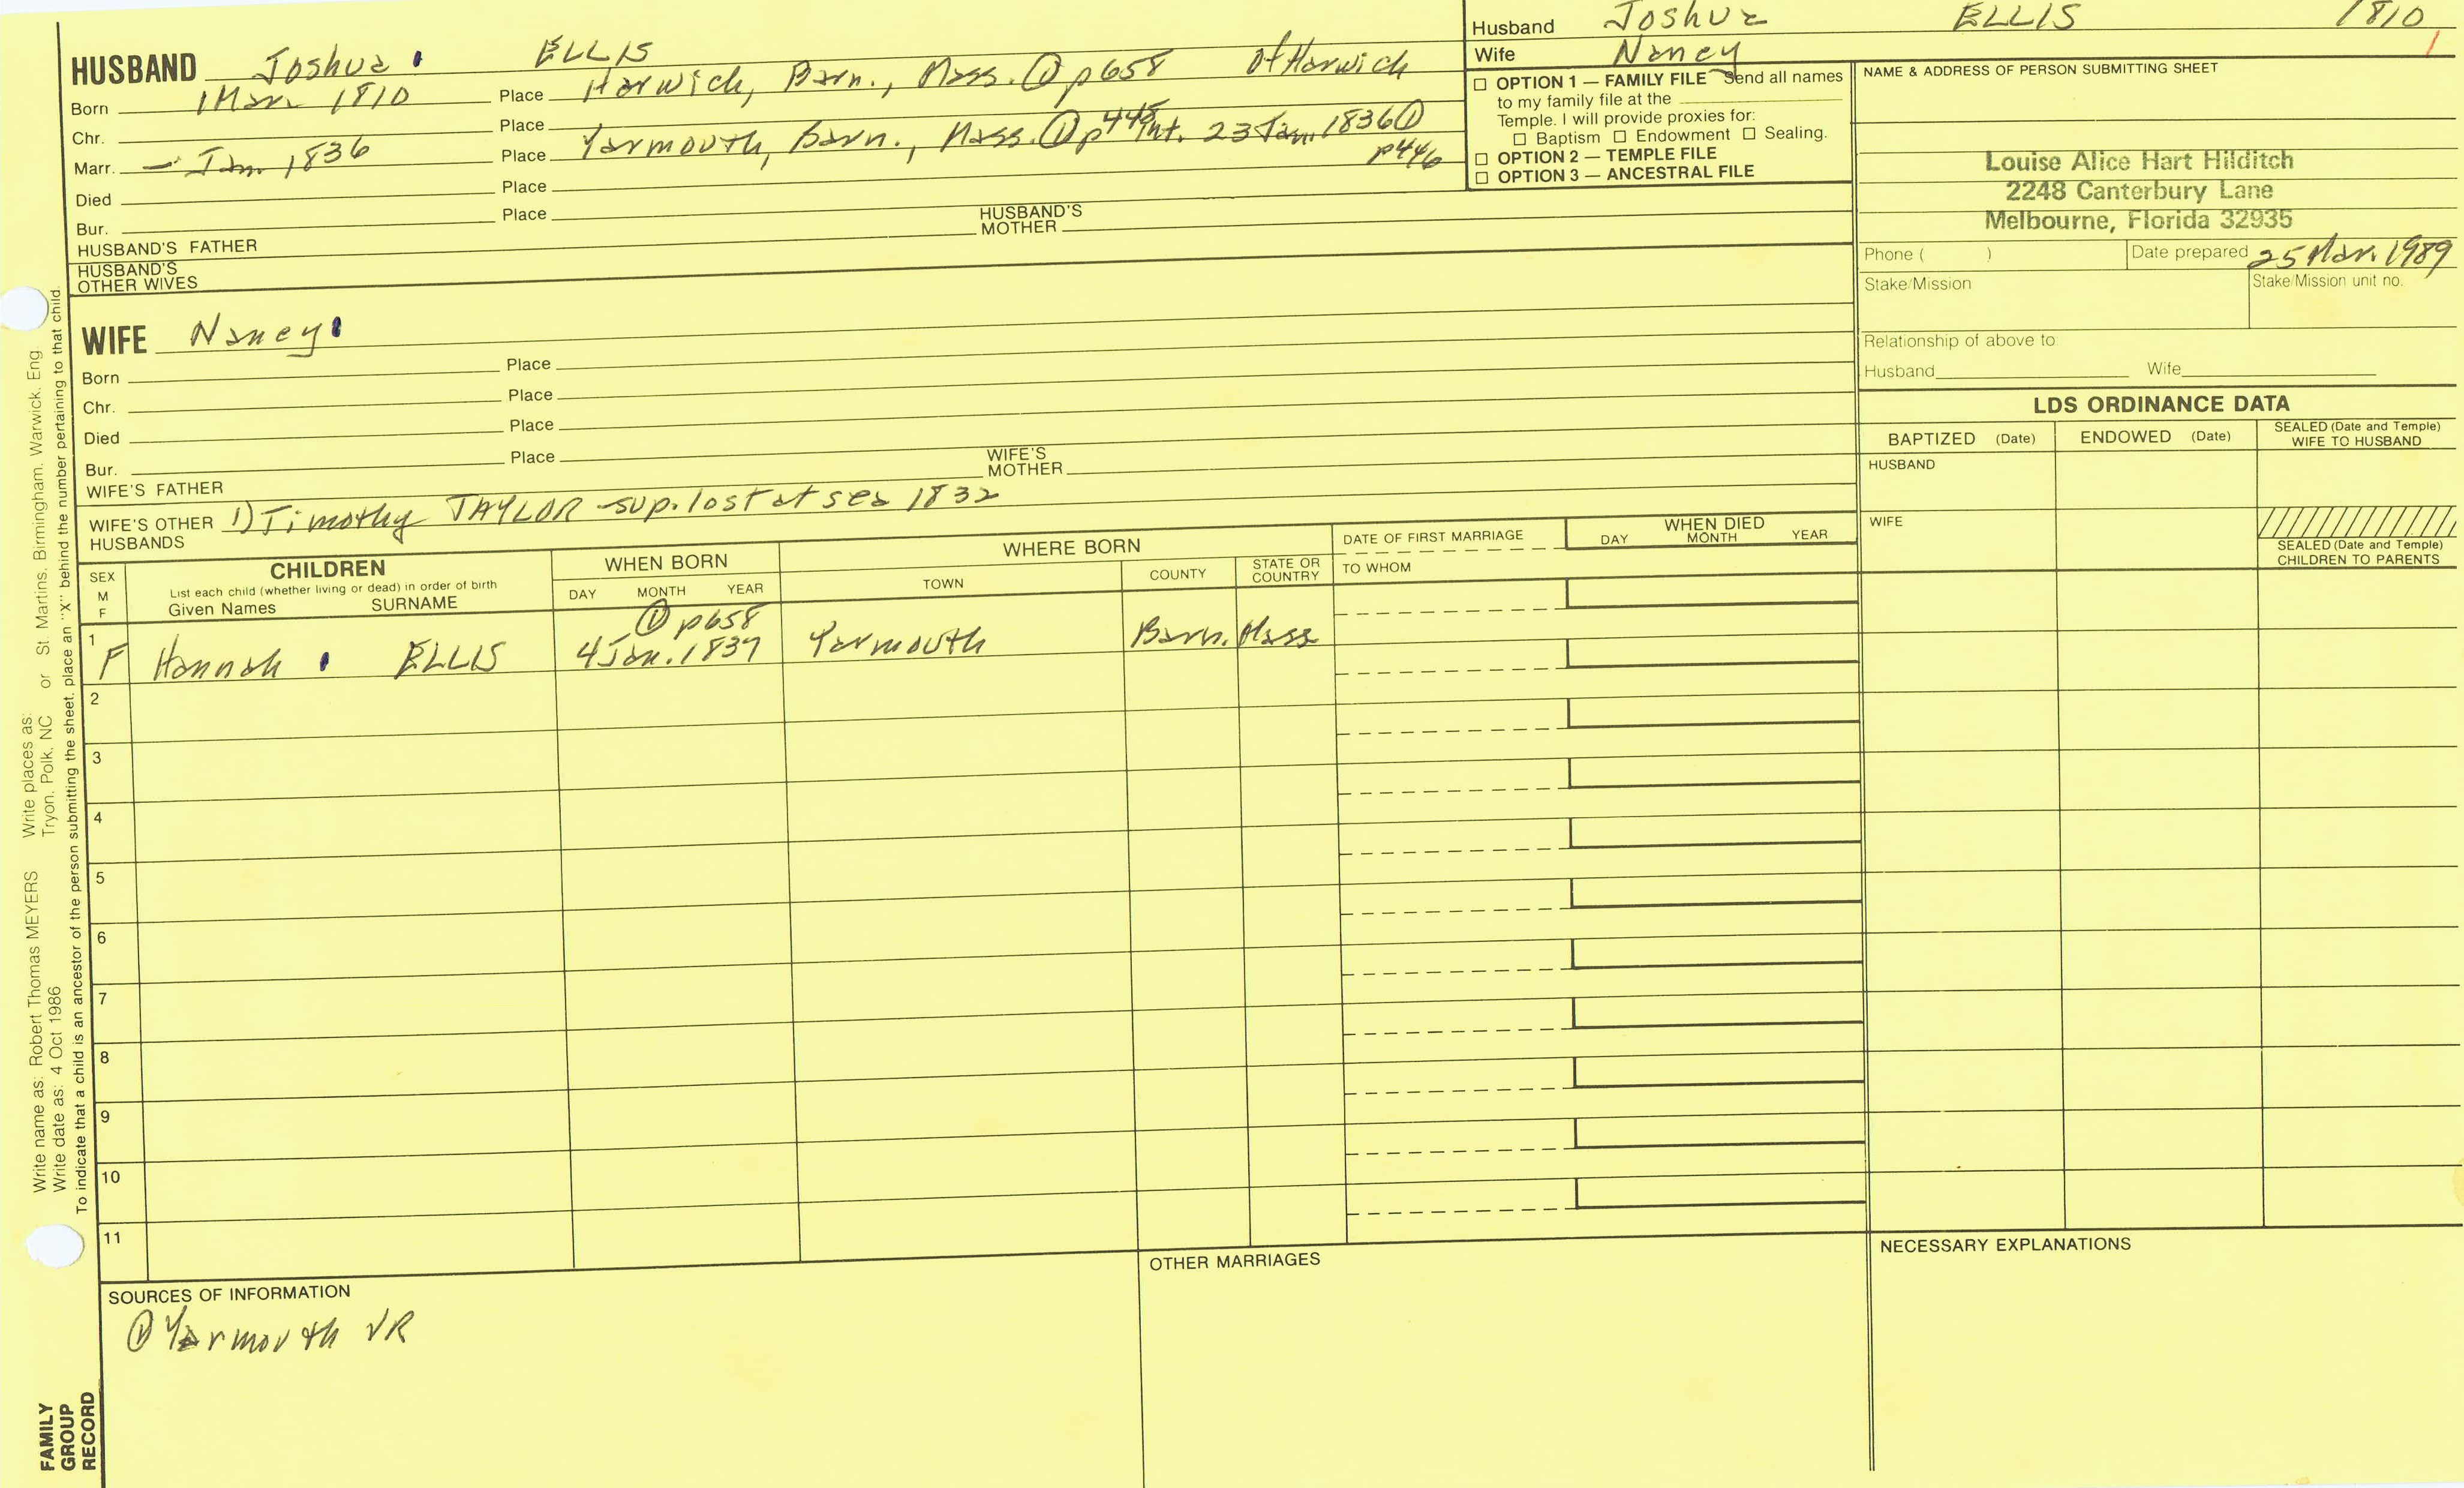 Husband Joshua ELLIS 1810
Wife Nancy 1
HUSBAND Joshua ELLIS
Born 1 Mar. 1810 Place Harwich, Barn., Mass. ① p658 of Harwich
Chr. Place
Marr. — Jan. 1836 Place Yarmouth, Barn., Mass. ① p445 Int. 23 Jan. 1836 ① p446
Died Place
Bur. Place
HUSBAND'S FATHER HUSBAND'S MOTHER
HUSBAND'S OTHER WIVES
☐ OPTION 1 — FAMILY FILE Send all names
to my family file at the
Temple. I will provide proxies for:
☐ Baptism ☐ Endowment ☐ Sealing.
☐ OPTION 2 — TEMPLE FILE
☐ OPTION 3 — ANCESTRAL FILE
NAME & ADDRESS OF PERSON SUBMITTING SHEET
Louise Alice Hart Hilditch
2248 Canterbury Lane
Melbourne, Florida 32935
Phone ( ) Date prepared 25 Mar. 1989
Stake/Mission Stake/Mission unit no.
Relationship of above to:
Husband Wife
WIFE Nancy
Born Place
Chr. Place
Died Place
Bur. Place
WIFE'S FATHER WIFE'S MOTHER
WIFE'S OTHER HUSBANDS 1) Timothy TAYLOR - sup. lost at sea 1832
LDS ORDINANCE DATA
BAPTIZED (Date) ENDOWED (Date) SEALED (Date and Temple) WIFE TO HUSBAND
HUSBAND
WIFE
SEALED (Date and Temple) CHILDREN TO PARENTS
SEX M F
CHILDREN
List each child (whether living or dead) in order of birth
Given Names SURNAME
WHEN BORN
DAY MONTH YEAR
WHERE BORN
TOWN COUNTY STATE OR COUNTRY
DATE OF FIRST MARRIAGE
TO WHOM
WHEN DIED
DAY MONTH YEAR
① p658
1 F Hannah ELLIS 4 Jan. 1837 Yarmouth Barn. Mass
2
3
4
5
6
7
8
9
10
11
SOURCES OF INFORMATION
① Yarmouth VR
OTHER MARRIAGES
NECESSARY EXPLANATIONS
Write name as: Robert Thomas MEYERS Write places as:
Write date as: 4 Oct 1986 Tryon, Polk, NC or St. Martins, Birmingham, Warwick, Eng.
To indicate that a child is an ancestor of the person submitting the sheet, place an "X" behind the number pertaining to that child.
FAMILY
GROUP
RECORD